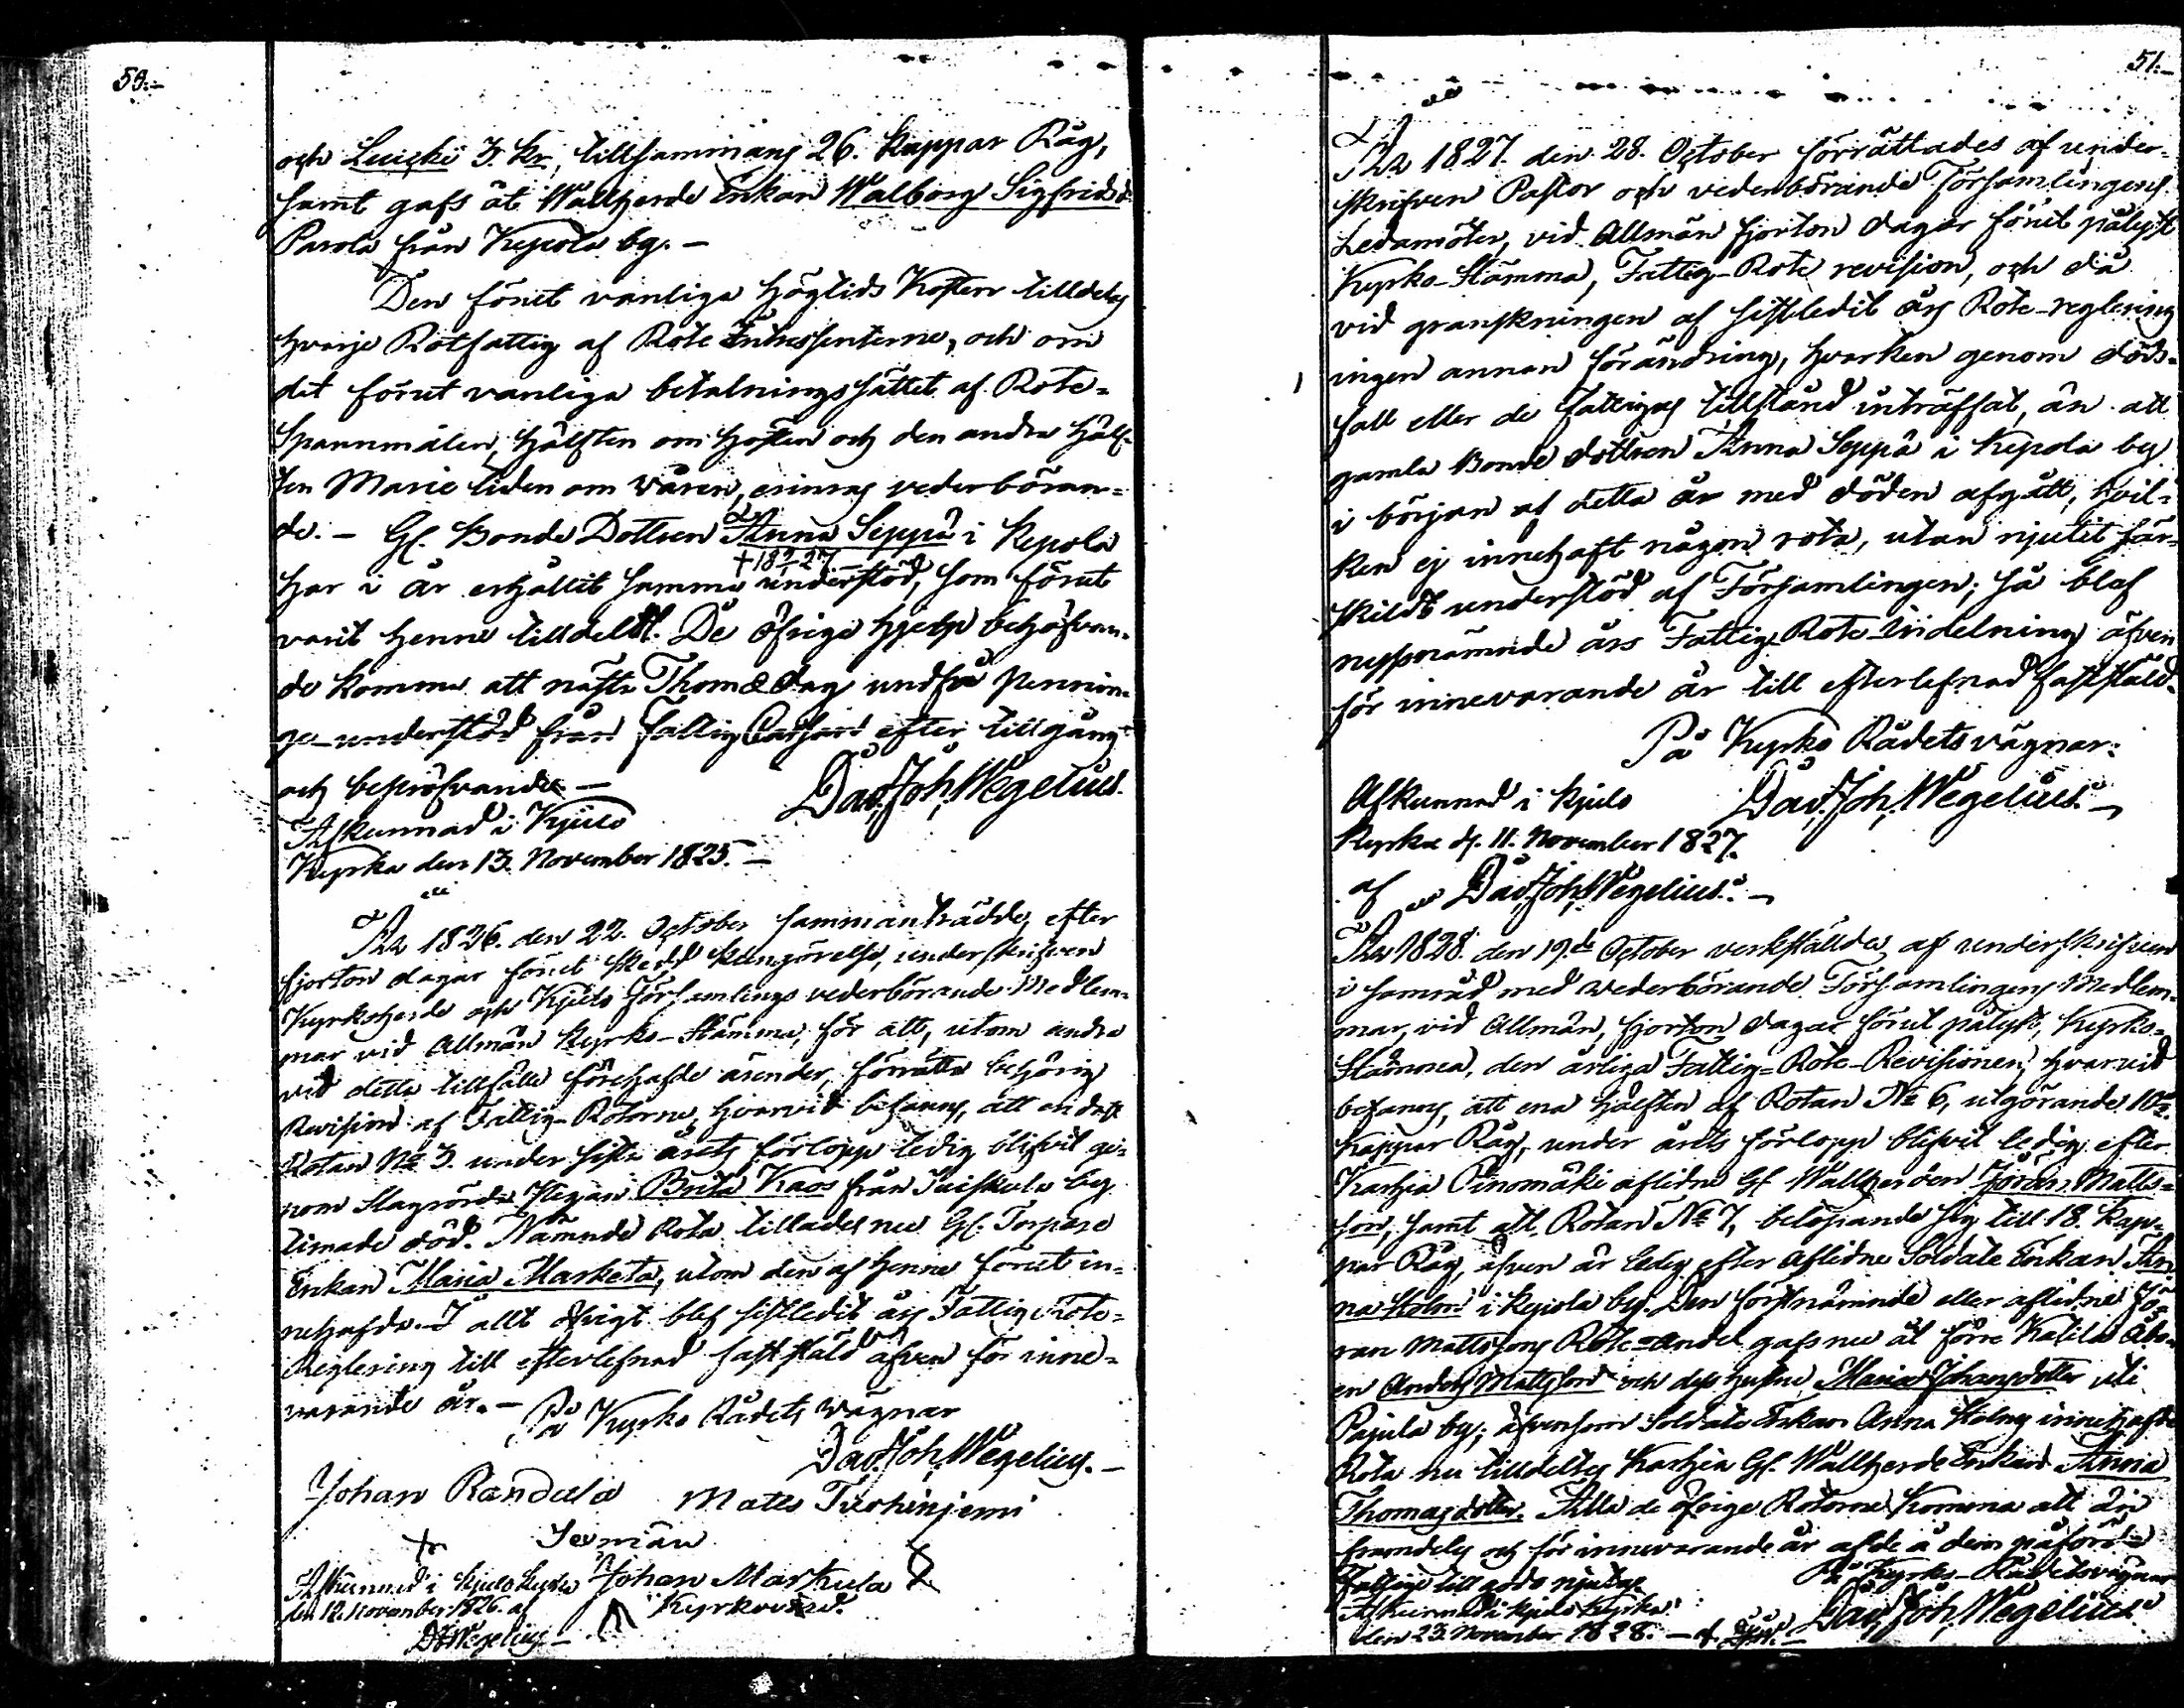 50.-
och Luiski 3. kr, tillsammans 26. Kappar Råg,
samt gafs åt Wallherde Enkan Walborg Sigfridsd.
Parola från Kepola by. -
Den förut vanliga högtids Kosten tilldelas
hvarje Rotfattig af Rote Intressenterne, och om
det förut vanliga betalningssättet af Rote=
Spannmålen, hälften om hösten och den andra hälf-
ten Marie tiden om våren, erinras vederböran=
de. - Gl. Bonde Dottren Anna Seppä i Kepola
+ 18 2/2 27. -
har i år erhållit samma understöd, som förut
varit henne tilldelt. De öfrige hjelp behöfvan-
de komma att nästa Thomæ dag undfå pennin-
ge-understöd från Fattig Cassan efter tillgång
och bepröfvande -
Dav. Joh. Wegelius.
Afkunnad i Kjulo
Kyrka den 13. November 1825. -
År 1826. den 22. October sammanträdde, efter
fjorton dagar förut skedd kungörelse, underskrifven
Kyrkoherde och Kjulo Församlings vederbörande Medlem-
mar vid Allmän Kyrko-Stämma, för att, utom andra
vid detta tillfälle förehafde ärender, förrätta behörig
Revision af Fattig-Rotorne, hvarvid befanns, att endast
Rotan No 3. under sista årets förlopp ledig blifvit ge-
nom Slagrörda Pigan Brita Kaos från Suiskula by
timade död. Nämnde Rota tillades nu Gl. Torpare
Enkan Maria Marketa, utom den af henne förut in-
nehafda. I allt öfrigt blef sistledit års Fattig Rote-
Reglering till efterlefnad faststäld äfven för inne-
varande år. -
På Kyrko Rådets vägnar
Dav. Joh. Wegelius. -
Johan Randala Matts Tuohinjemi
Sexmän
Afkunnad i Kjulo Kyrka Johan Markula
den 12. November 1826. af Kyrkovärd.
DJWegelius -
51.-
År 1827. den 28. October förrättades af under-
skrifven Pastor och vederbörande Församlingens
Ledamöter, vid Allmän fjorton dagar förut pålyst
Kyrko-Stämma, Fattig-Rote revision, och då
vid granskningen af sistledit års Rote-reglering
ingen annan förändring, hvarken genom döds-
fall eller de fattigas tillstånd inträffat, än att
gamla Bonde dottren Anna Seppä i Kepola by
i början af detta år med döden afgått, hvil-
ken ej innehaft någon rota, utan njutit sär-
skildt understöd af Församlingen; så blef
nyssnämnde års Fattig-Rote-Indelning äfven
för innevarande år till efterlefnad faststäld.
På Kyrko Rådets vägnar:
Afkunnad i Kjulo Dav. Joh. Wegelius. -
Kyrka d. 11. November 1827.
af Dav. Joh. Wegelius. -
År 1828. den 19.de October verkställdes af underskrifven
i samråd med vederbörande Församlingens Medlem-
mar, vid Allmän, fjorton dagar förut pålyst, Kyrko=
Stämma, den årliga Fattig=Rote-Revisionen, hvarvid
befanns, att ena hälften af Rotan No 6, utgörande 10
Kappar Råg, under årets förlopp blifvit ledig efter
Karhia Pinomäki aflidne Gl. Wallherden Jöran Matts=
son, samt att Rotan No 7, belöpande sig till 18. Kap-
par Råg, äfven är ledig efter aflidne Soldate Enkan An-
na Holm i Kepola by. Den förstnämnde eller aflidne Jö-
ran Mattssons Rote=andel gafs nu åt förre Katila Åbo-
en Anders Mattsson och dess hustru Maria Johansdotter uti
Pajula by; äfvensom Soldate Enkan Anna Holms innehafde
Rota nu tilldeltes Karhia Gl. Wallherde Enkan Anna
Thomasdotter. Alla de öfrige Rotorne komma att än
framdeles och för innevarande år af de å dem påförde
Fattige till godo njutas På Kyrko-Rådets vägnar
Afkunnad i Kjulo Kyrka Dav. Joh. Wegelius
den 23. November 1828. -